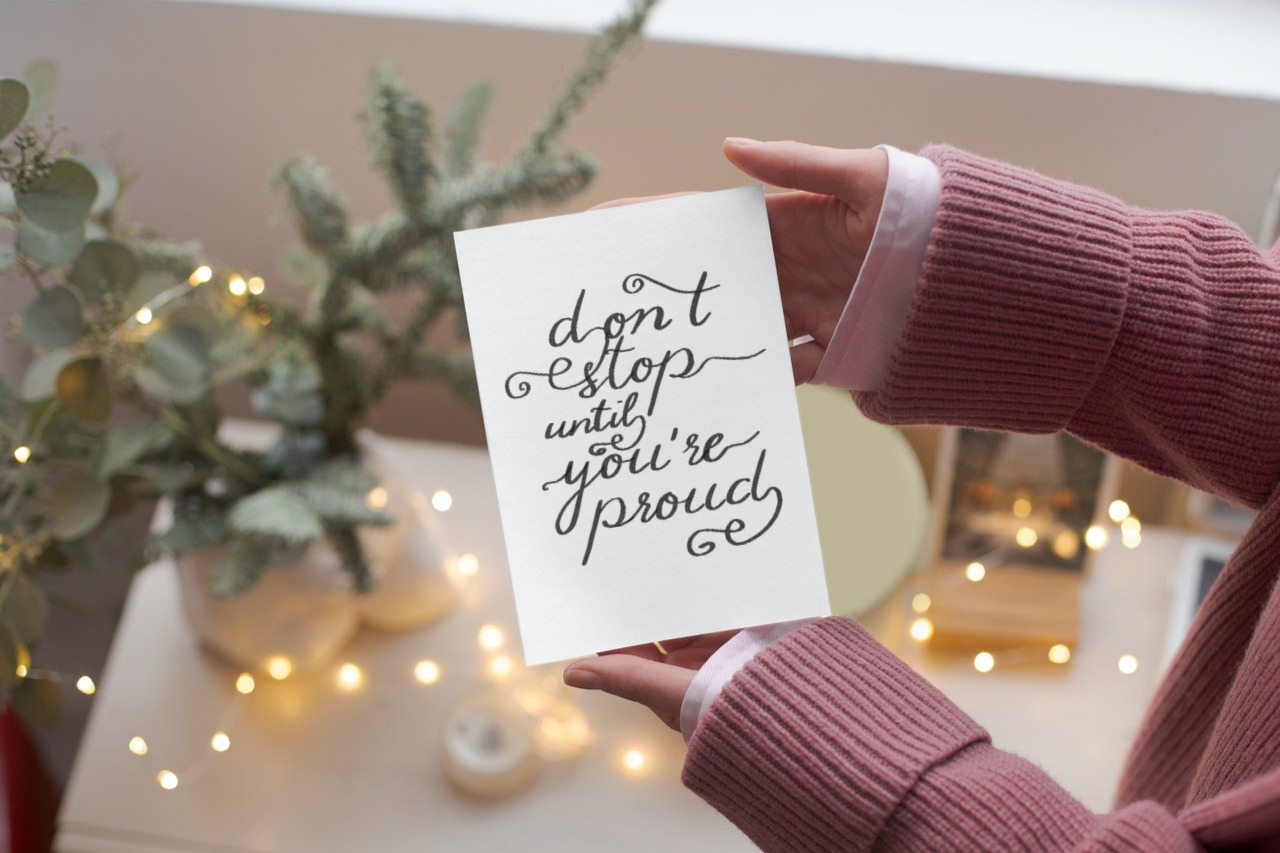 don't
stop
until
you're
proud